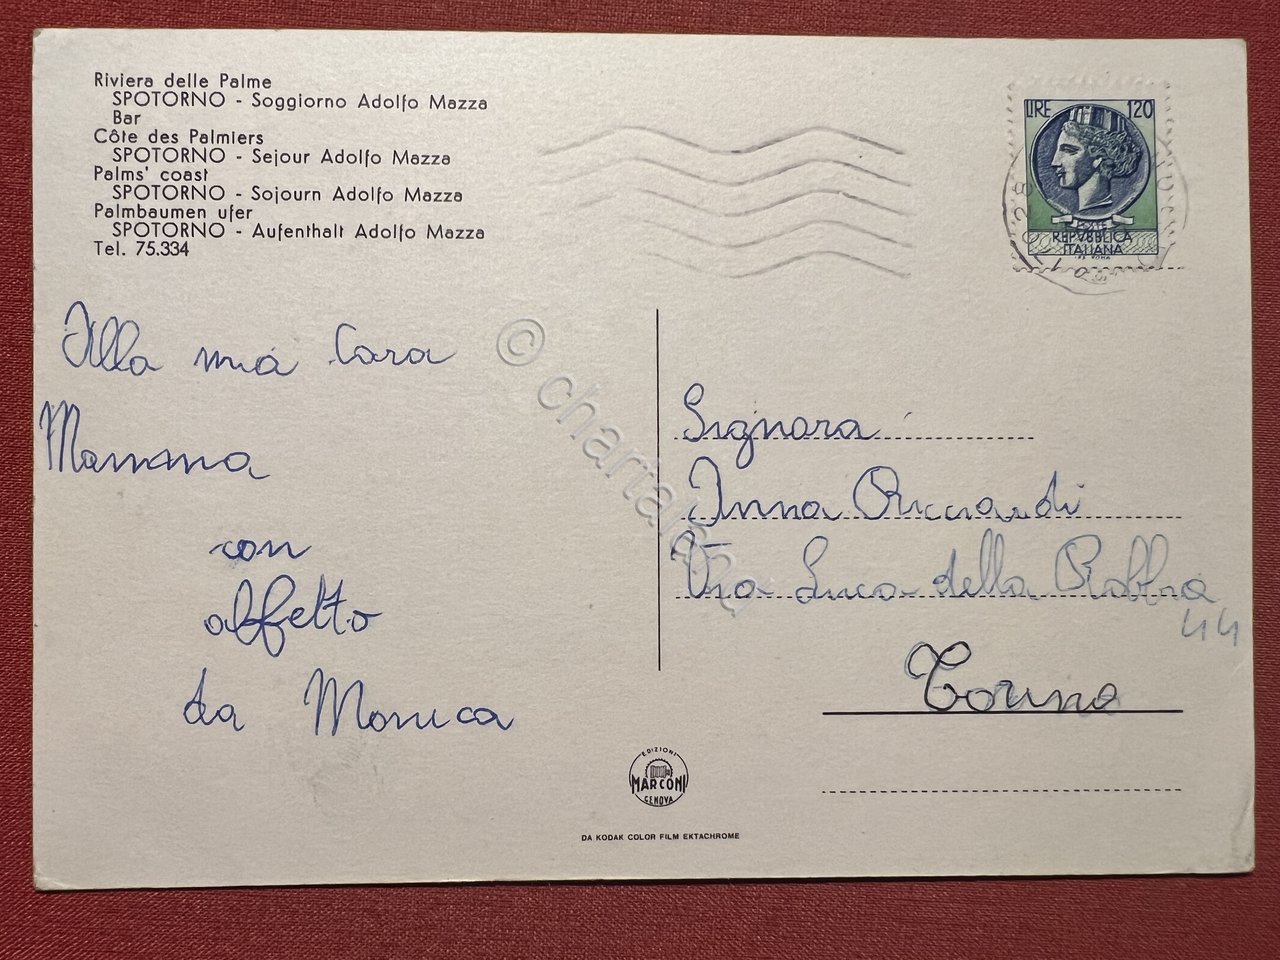 Riviera delle Palme
SPOTORNO - Soggiorno Adolfo Mazza
Bar
Côte des Palmiers
SPOTORNO - Sejour Adolfo Mazza
Palms' coast
SPOTORNO - Sojourn Adolfo Mazza
Palmbaumen ufer
SPOTORNO - Aufenthalt Adolfo Mazza
Tel. 75.334
LIRE 120
POSTE
REPVBBLICA
ITALIANA
Alla mia Cara
Mamma
con
affetto
da Monica
Signora
Anna Ricciardi
Via Luca della Robbia
44
Torino
EDIZIONI
MARCONI
GENOVA
DA KODAK COLOR FILM EKTACHROME